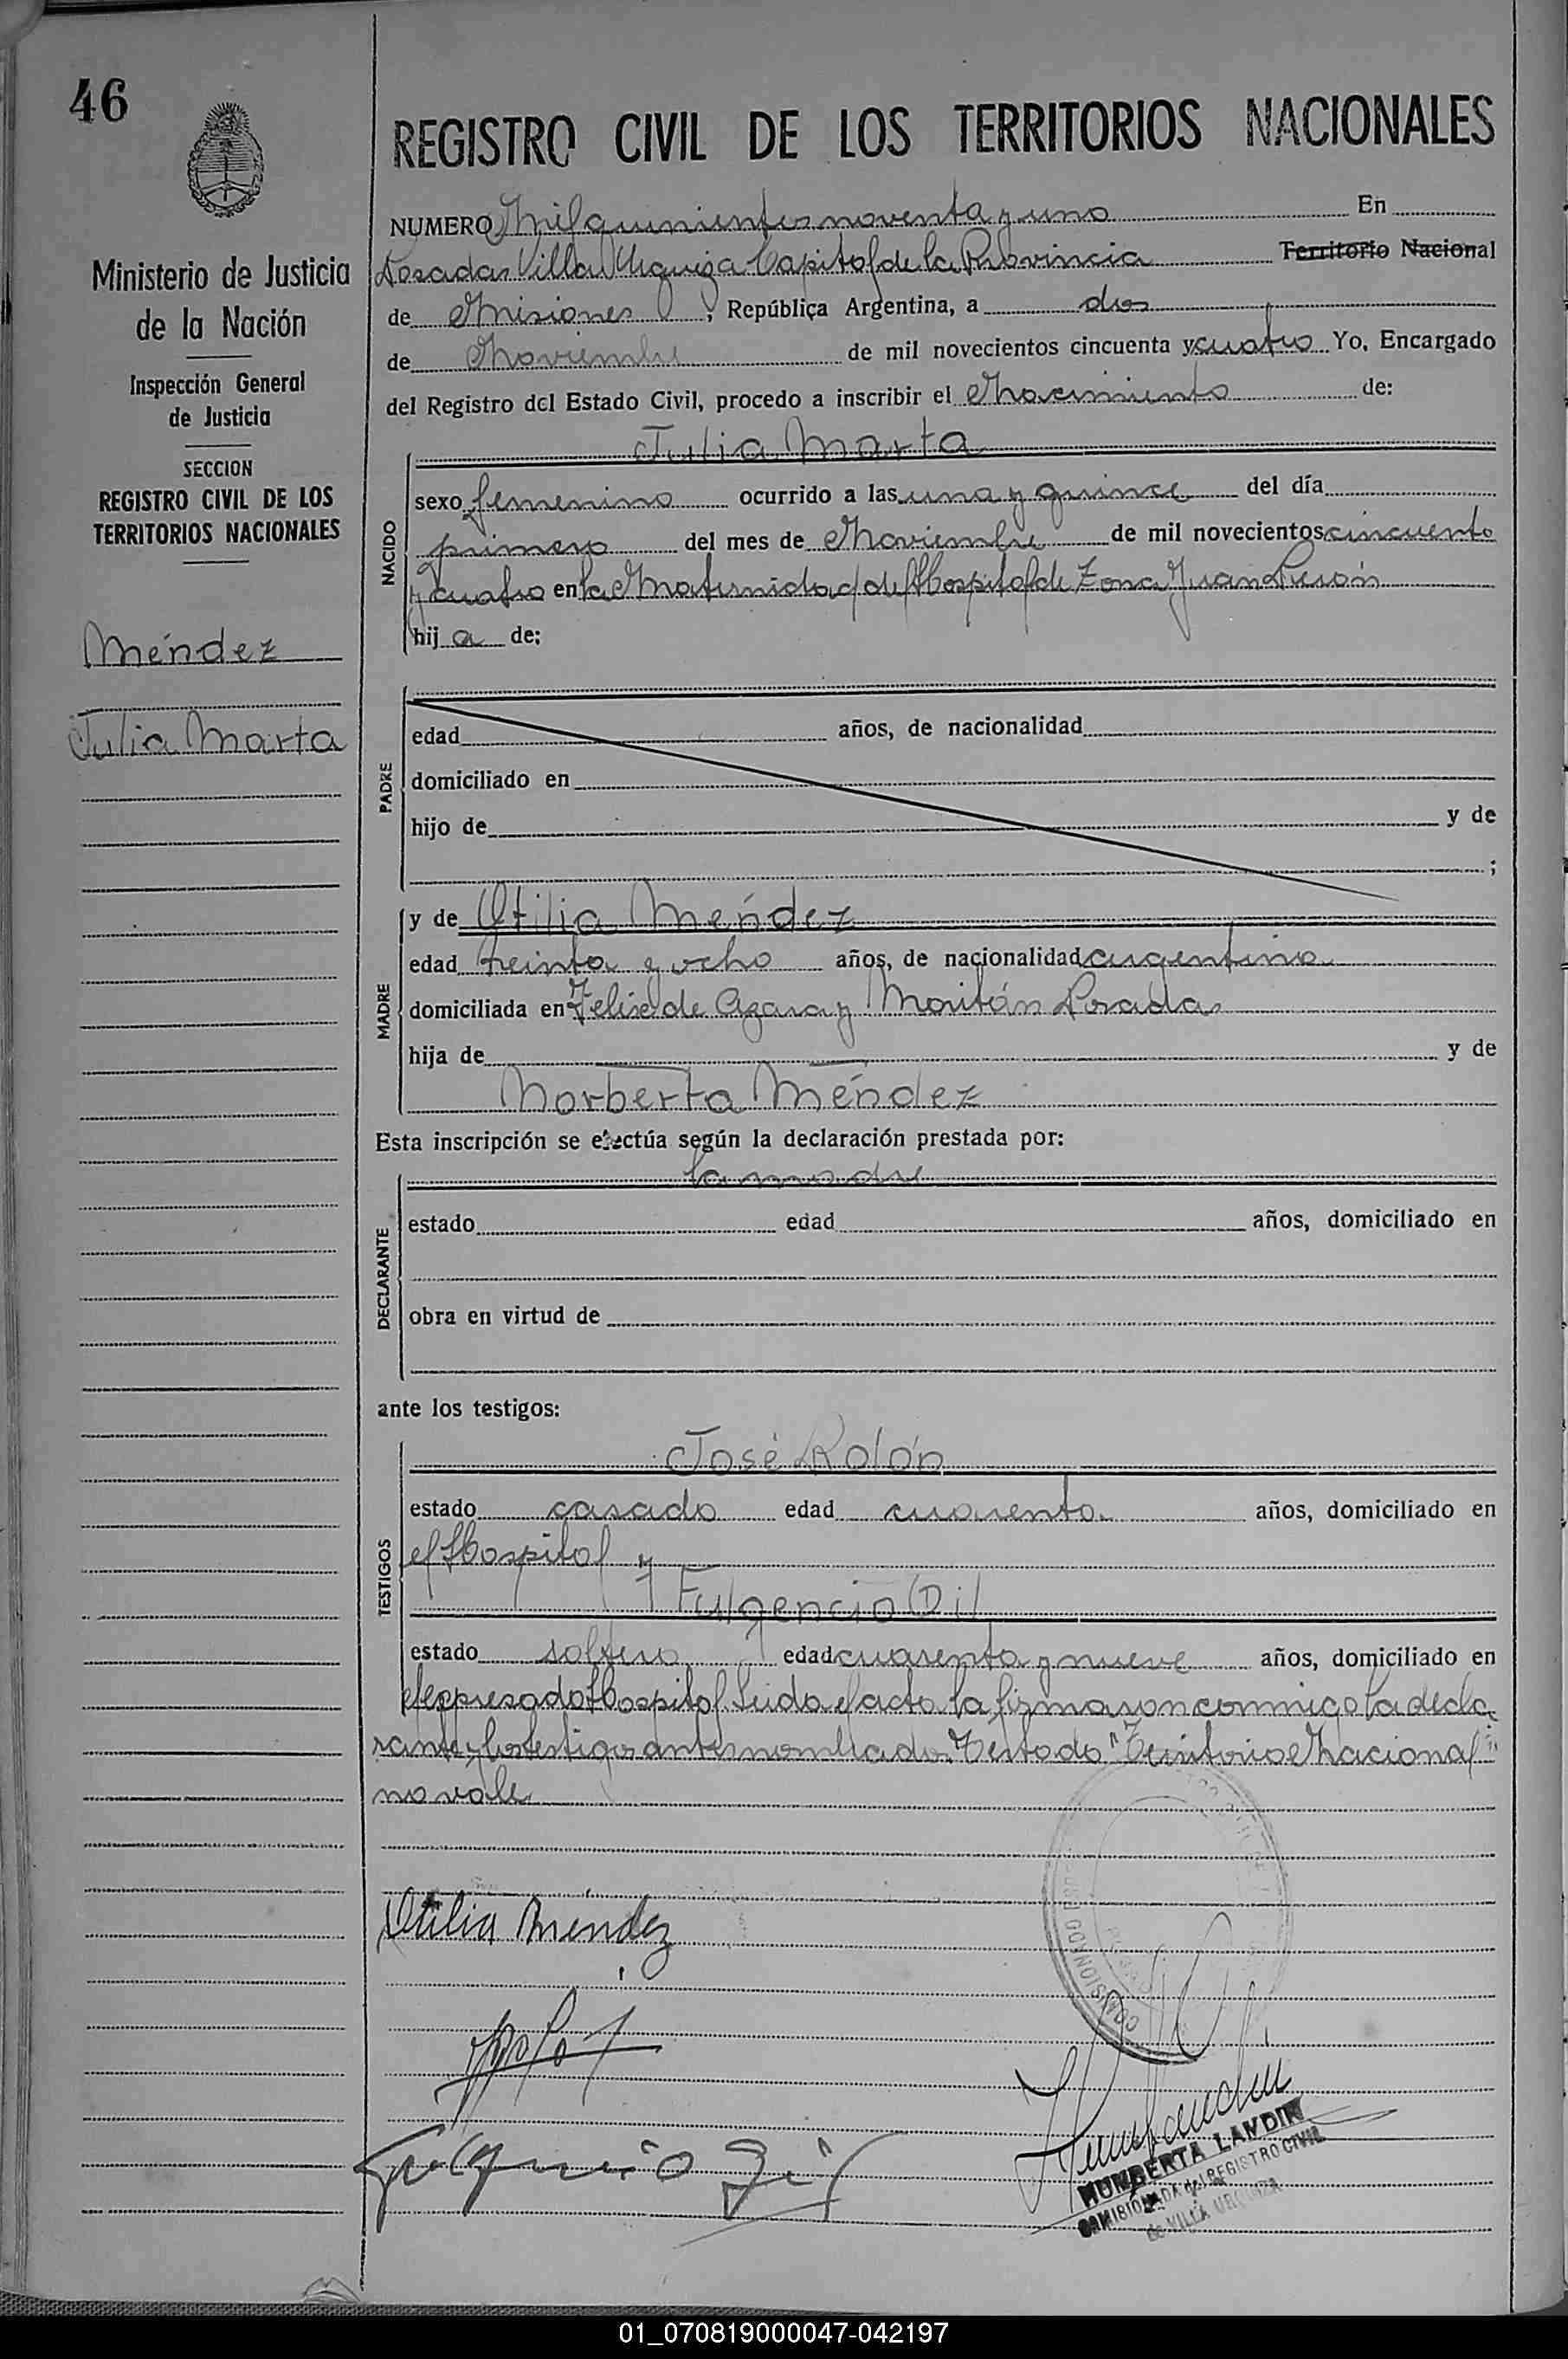 46
REGISTRO CIVIL DE LOS TERRITORIOS NACIONALES
Ministerio de Justicia
de la Nación
Inspección General
de Justicia
SECCION
REGISTRO CIVIL DE LOS
TERRITORIOS NACIONALES
Méndez
Julia Marta
NUMERO Mil quinientos noventa y uno En
Posadas Villa Urquiza Capital de la Provincia Territorio Nacional
de Misiones, República Argentina, a dos
de Noviembre de mil novecientos cincuenta y cuatro Yo, Encargado
del Registro del Estado Civil, procedo a inscribir el Nacimiento de:
NACIDO
Julia Marta
sexo femenino ocurrido a las una y quince del día
primero del mes de Noviembre de mil novecientos cincuenta
y cuatro en la Maternidad del Hospital de Zona Juan Perón
hij a de:
PADRE
edad años, de nacionalidad
domiciliado en
hijo de y de
;
MADRE
y de Otilia Méndez
edad treinta y ocho años, de nacionalidad argentina
domiciliada en Felix de Azara y Posadas
hija de y de
Norberta Méndez
Esta inscripción se efectúa según la declaración prestada por:
la madre
DECLARANTE
estado edad años, domiciliado en
obra en virtud de
ante los testigos:
TESTIGOS
José Rolón
estado casado edad cuarenta años, domiciliado en
el Hospital y
Fulgencio Dil
estado soltero edad cuarenta y nueve años, domiciliado en
el expresado Hospital. Leida el acta la firmaron conmigo la decla
rante y los testigos antes nombrados. Testado "Territorio Nacional"
no vale
Otilia Méndez
Fulgencio Dil
COMISIONADO
HUMBERTA LANDIN
COMISIONADA del REGISTRO CIVIL
de VILLA URQUIZA
01_070819000047-042197